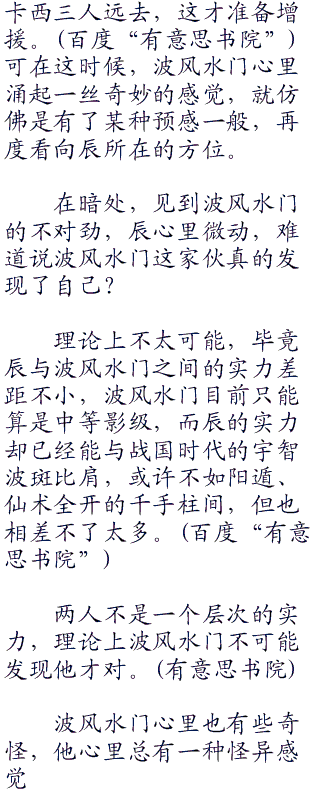 卡西三人远去，这才准备增
援。(百度“有意思书院”)
可在这时候，波风水门心里
涌起一丝奇妙的感觉，就仿
佛是有了某种预感一般，再
度看向辰所在的方位。
在暗处，见到波风水门
的不对劲，辰心里微动，难
道说波风水门这家伙真的发
现了自己？
理论上不太可能，毕竟
辰与波风水门之间的实力差
距不小，波风水门目前只能
算是中等影级，而辰的实力
却已经能与战国时代的宇智
波斑比肩，或许不如阳遁、
仙术全开的千手柱间，但也
相差不了太多。(百度“有意
思书院”)
两人不是一个层次的实
力，理论上波风水门不可能
发现他才对。(有意思书院)
波风水门心里也有些奇
怪，他心里总有一种怪异感
觉